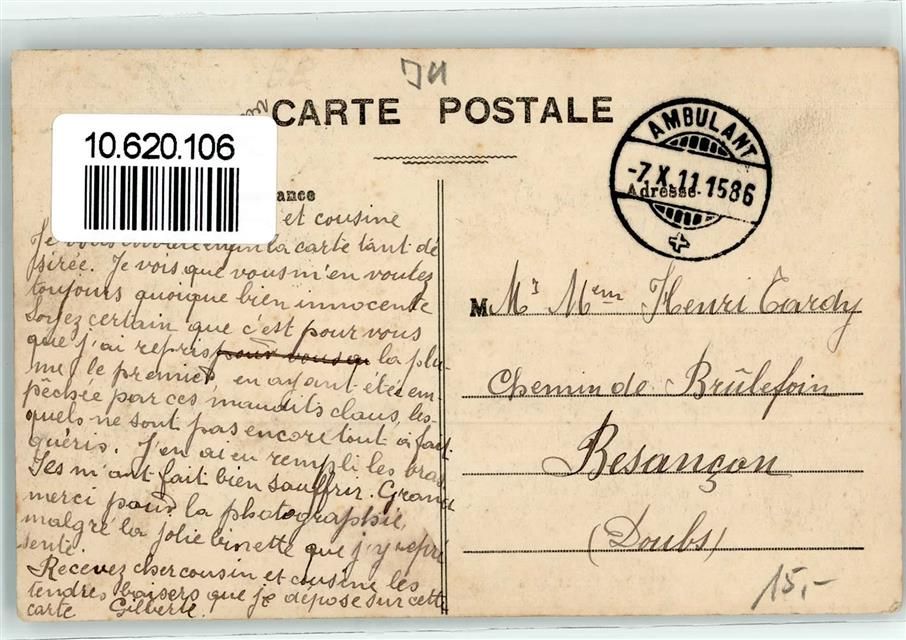 JH
CARTE POSTALE
10.620.106
AMBULANT
-7.X.11.1586
Adresse
ance
et cousine
la carte tant dé
sirée. Je vois que vous m'en voulez
toujours quoique bien innocente
Soyez certain que c'est pour vous
que j'ai repris pour vous la plu-
me, le premier, en ayant été em-
pêchée par ces maudits claus, les-
quels ne sont pas encore tout à fait
guéris. J'en ai eu rempli les bras
Ses m'ont fait bien souffrir. Grand
merci pour la photographie,
malgré la jolie binette que j'y repré
sente.
Recevez cher cousin et cousine les
tendres baisers que je dépose sur cette
carte Gilberte.
M Mr Mem Henri Tardy
Chemin de Brûlefoin
Besançon
(Doubs)
15,-